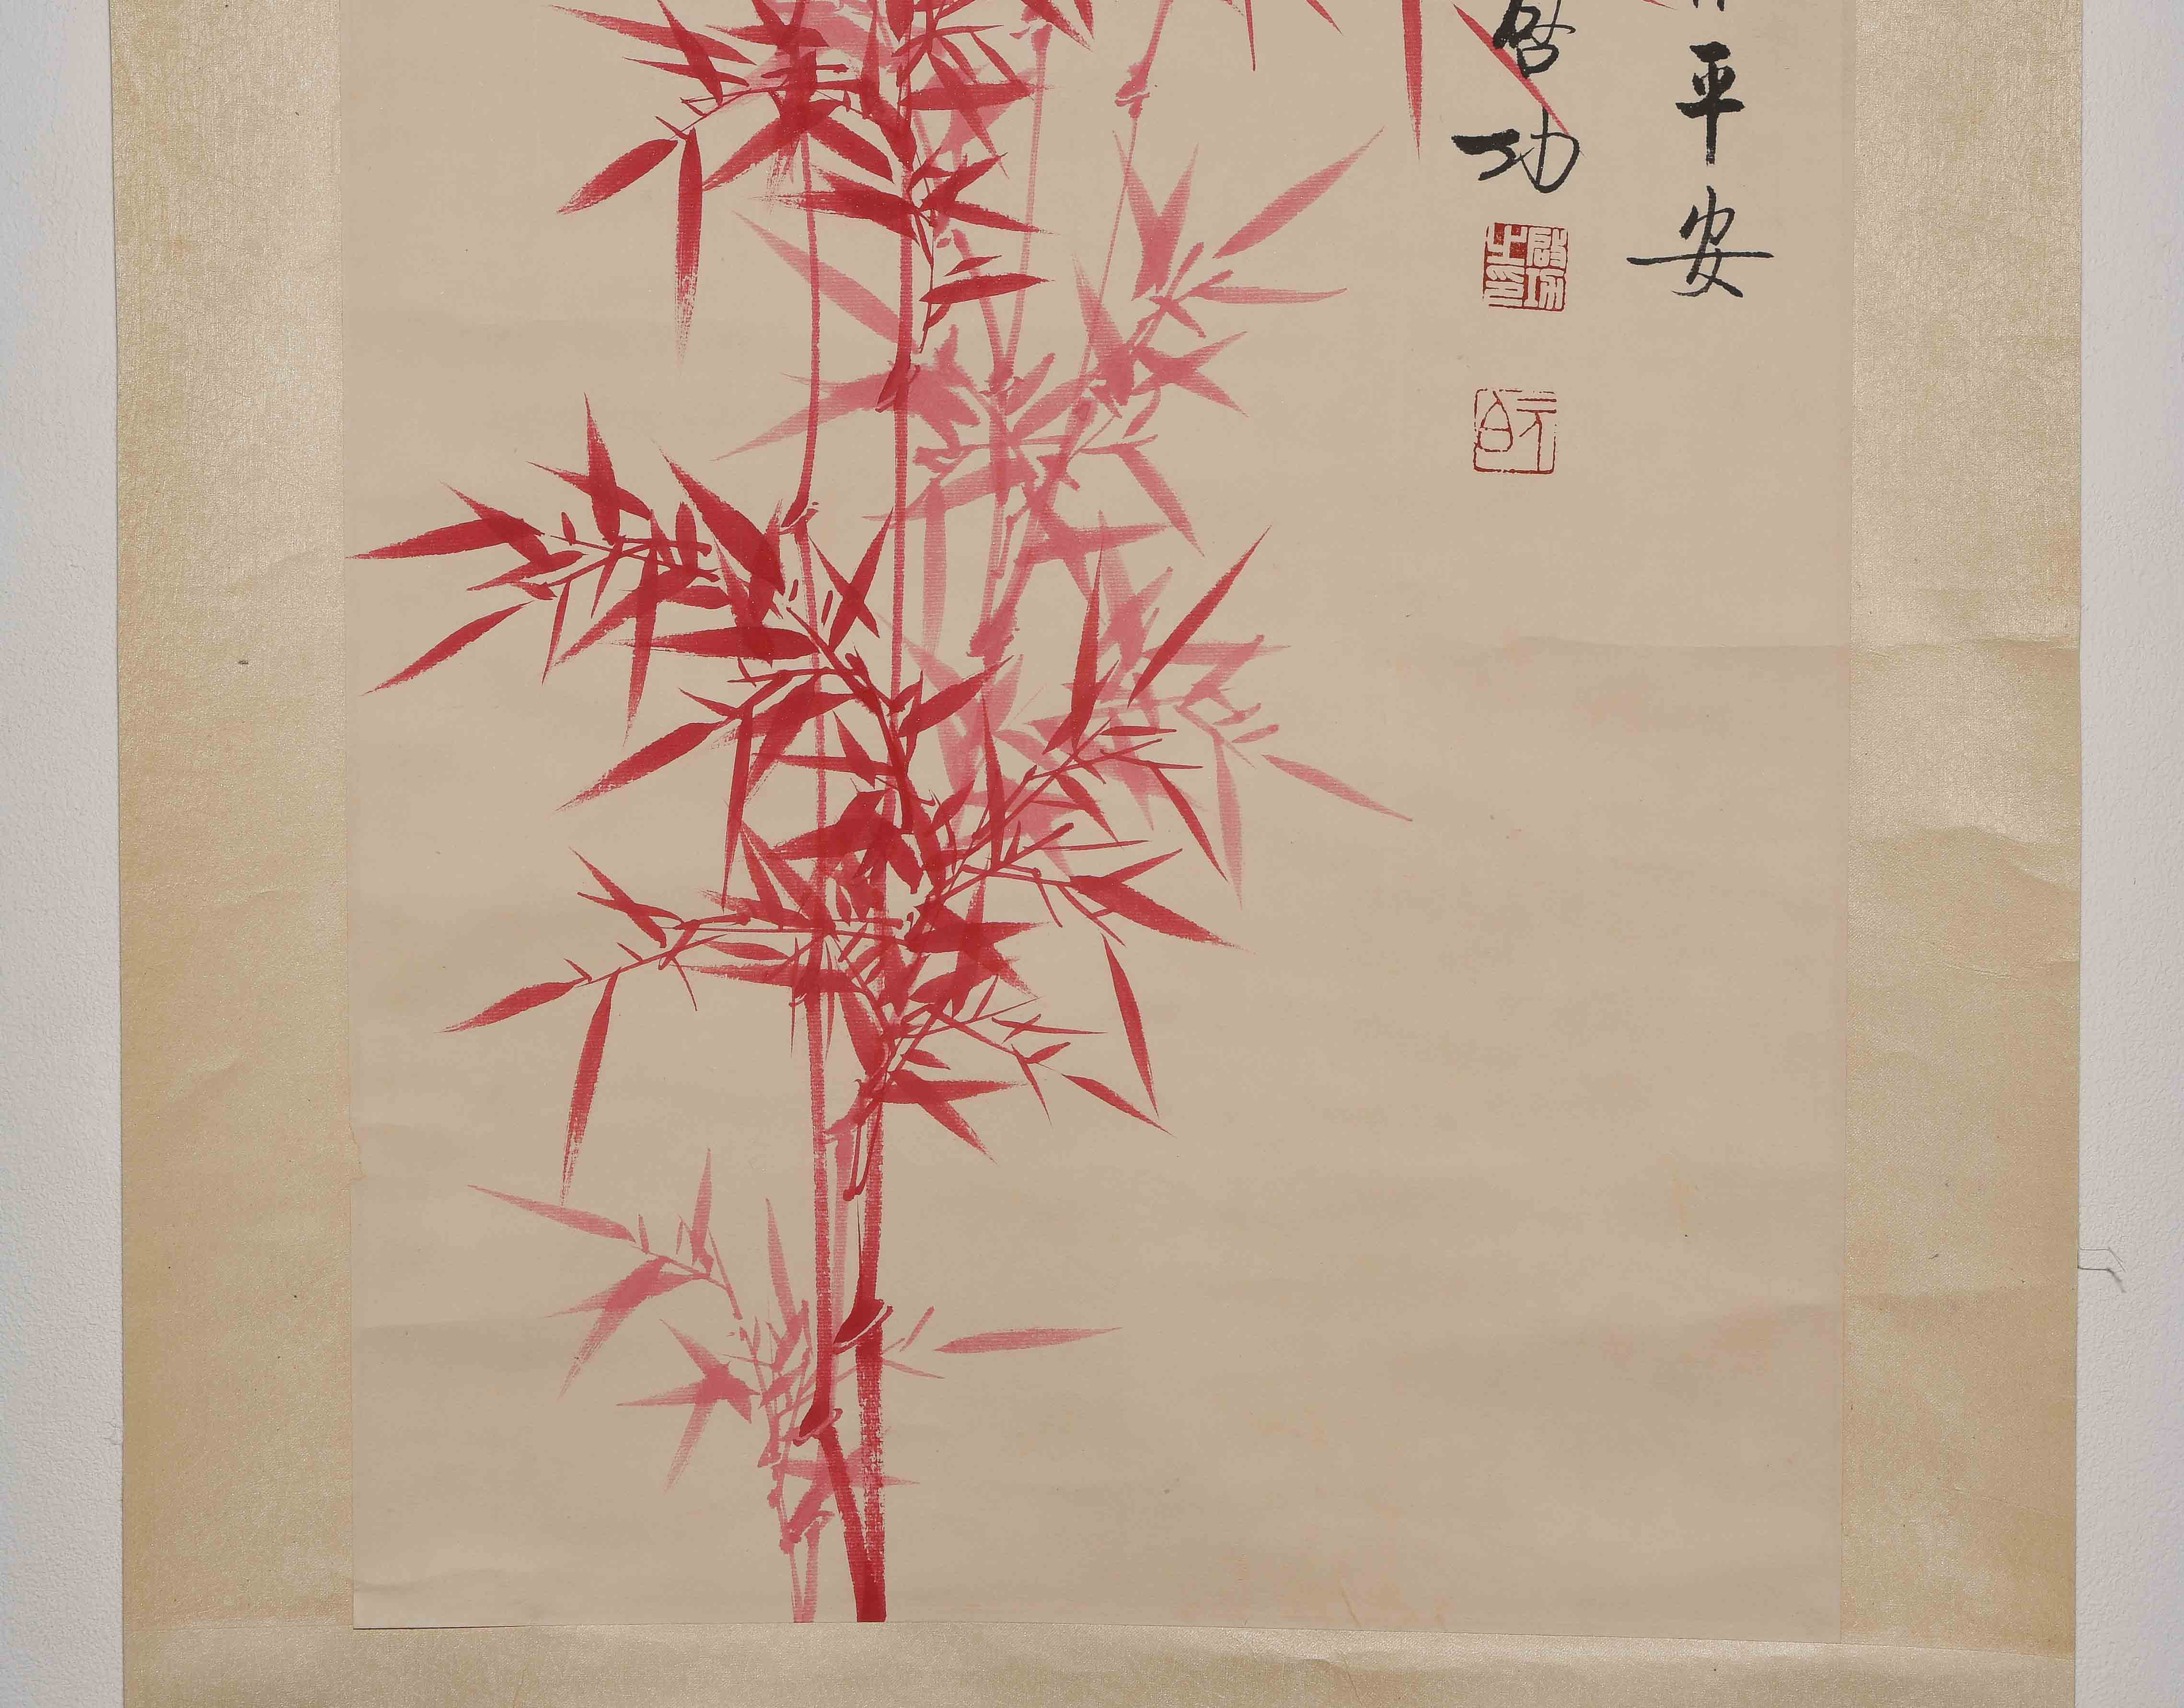 平安
启功
启功之印
元白